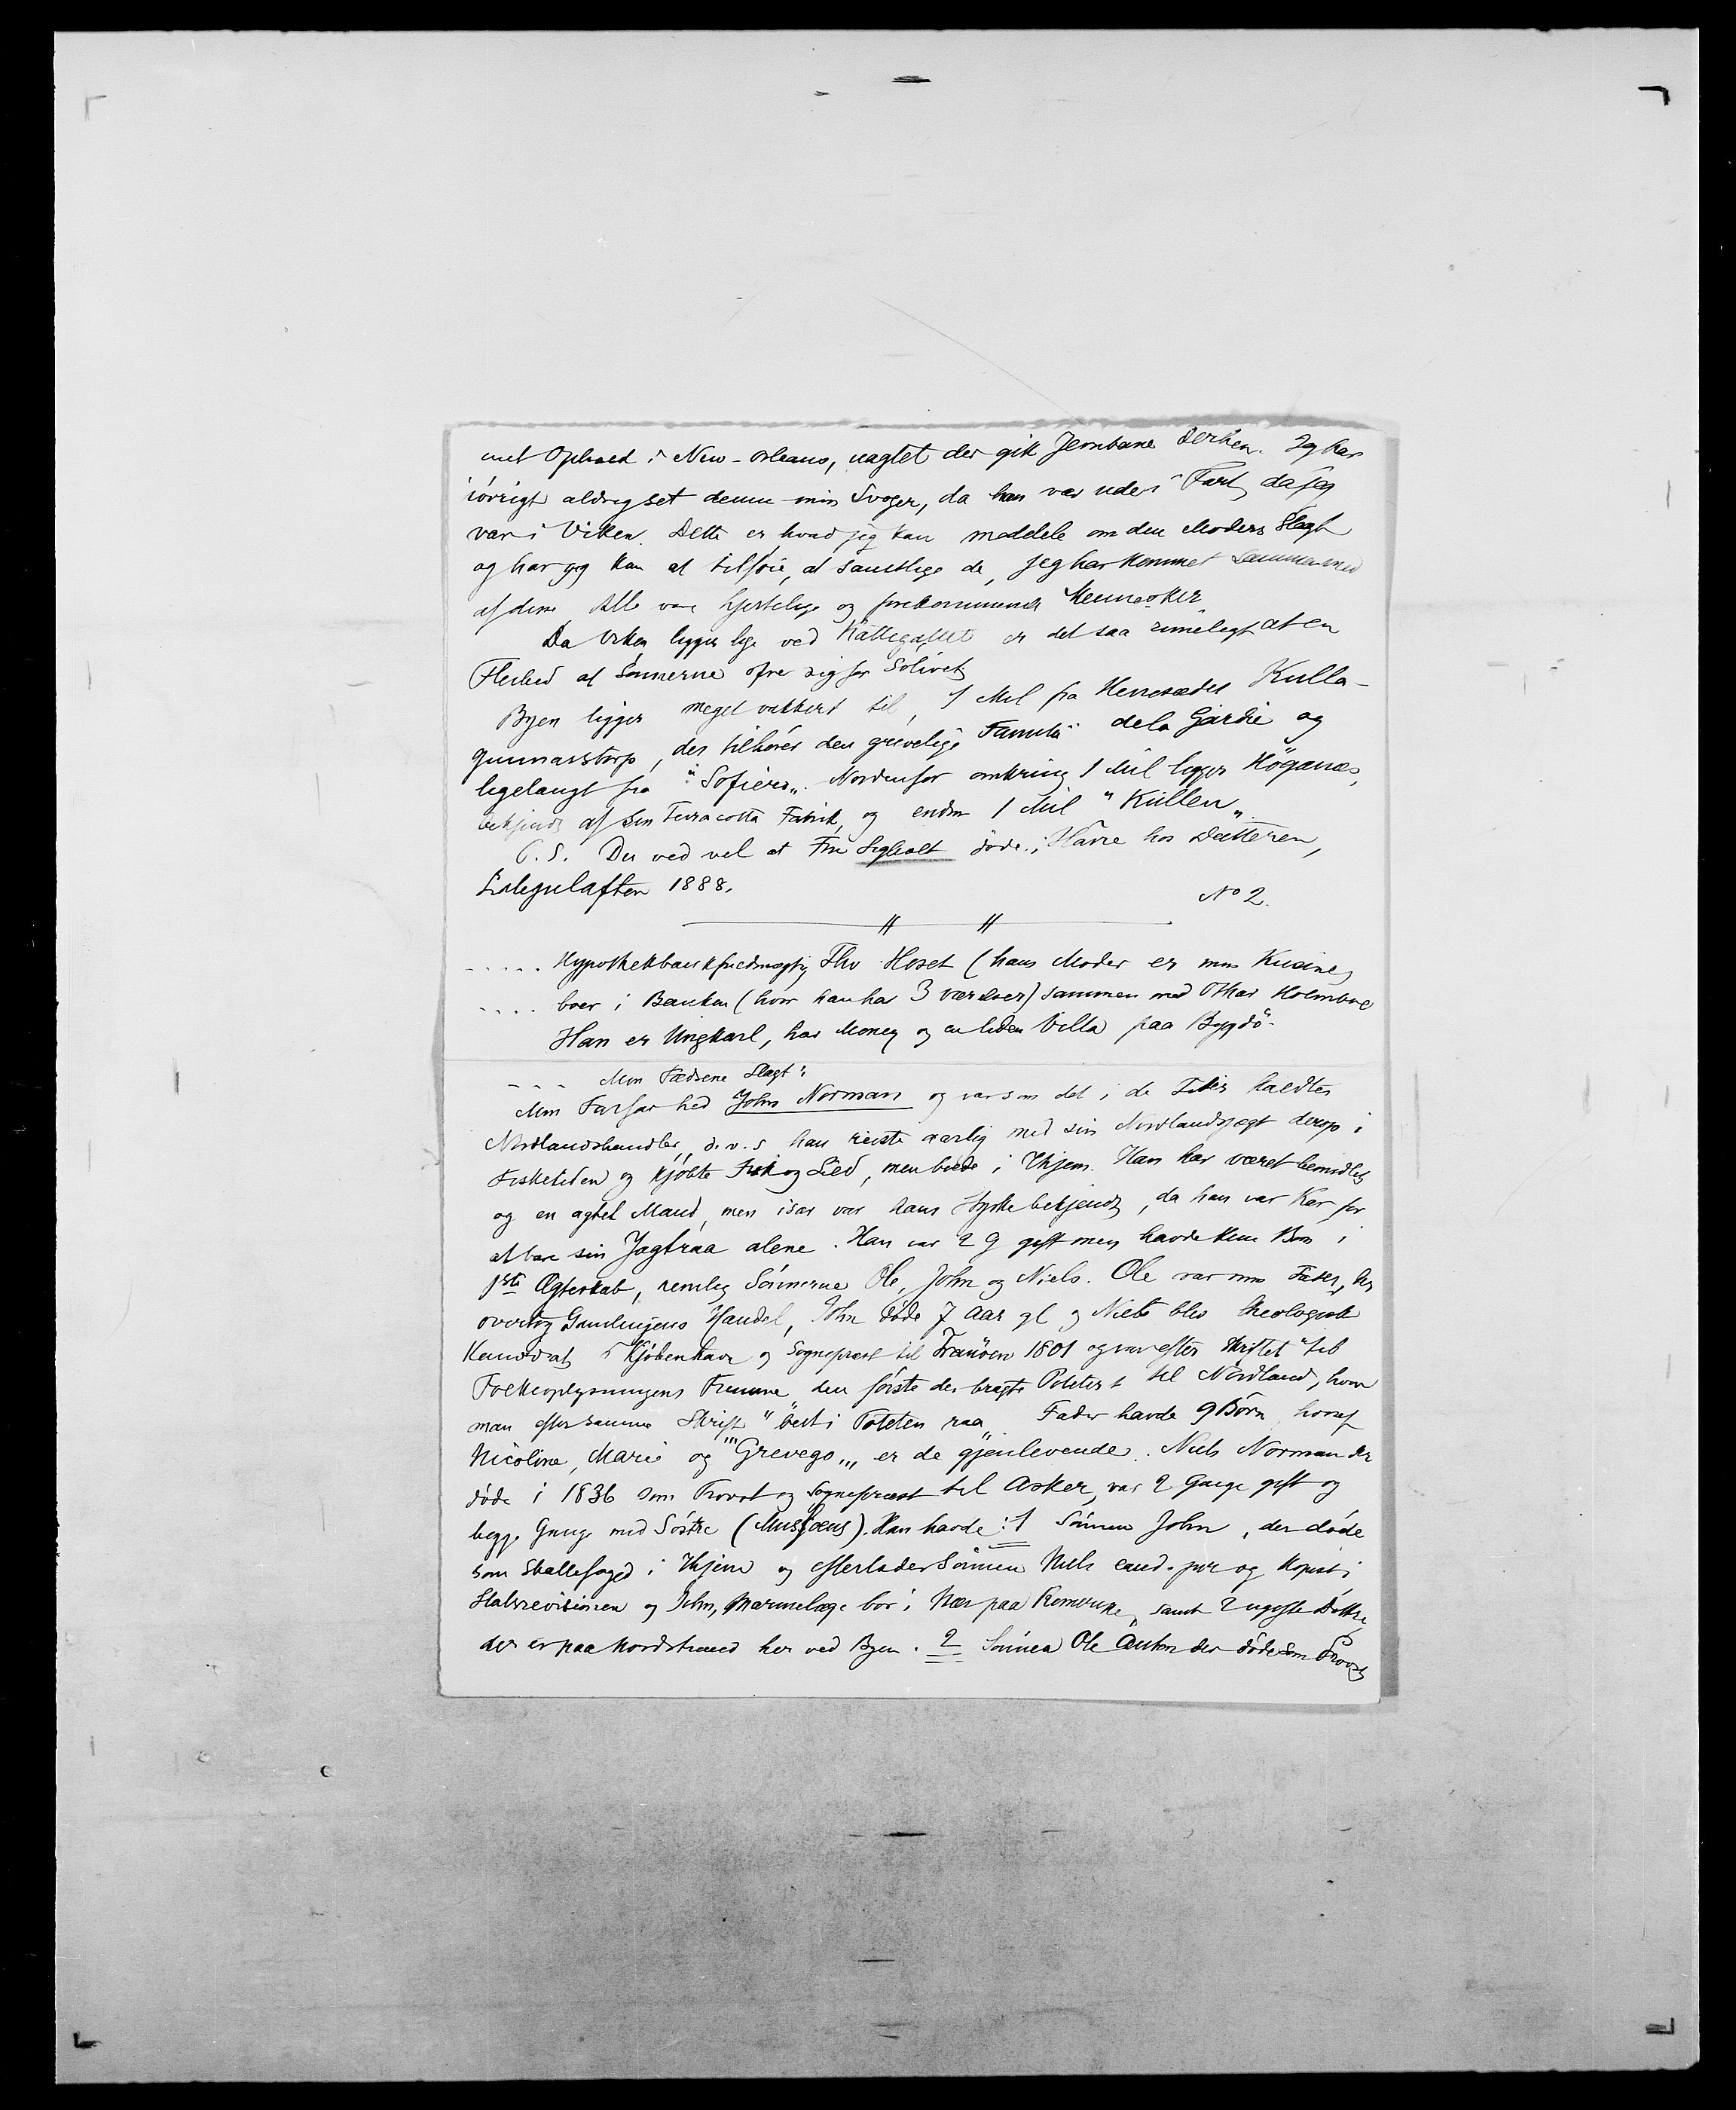 med Ophold i New-Orleans, uagtet der gik Jernbane derhen. Jeg har
iövrigt aldrig set denne min Svoger, da han var ude i Fart, da jeg
var i Viken. Dette er hvad jeg kan meddele om den Moders Slægt
og har jeg kun at tilföie, at samtlige de, jeg har kommet sammen med
af dem Alle vare hjertelige og forekommende Mennesker
Da Viken ligger lige ved Kattegattet er det saa rimeligt at en
Flerhed af Sönnerne ofre sig for Sölivet
Byen ligger meget vakkert til, 1 Mil fra Herresædet Kulla-
gunnarstorp, der tilhörer den grevelige Familie de la Gardie og
ligelangt fra "Sofiero„. Nordenfor omkring 1 Mil ligger Höganæs,
bekjendt af sin Terracotta Fabrik, og endnu 1 Mil "Kullen„.
P.S. Du ved vel at Fru döde i Havre hos Datteren,
Lillejulaften 1888.
No 2.
..... Hypothekbankfuldmægtig Thv. Hoset (hans Moder er min Kusine)
.... boer i Banken (hvor han har 3 værelser) sammen med Othar Holmboe
Han er Ungkarl, har Money og en liden Villa paa Bygdö.
- - - Min Fædrene Slægt:
Min Farfar hed John Norman og var som det i de Tider kaldtes
Nordlandshandler, d.v.s han reiste aarlig med sin Nordlandsjægt derop i
Fisketiden og kjöbte Fisk og Sild, men boede i Thjem. Han har været bemidlet
og en agtet Mand, men især var hans Styrke bekjendt, da han var Kar for
at bære sin Jagtraa alene. Han var 2 G gift men havde kun Börn i
1ste Ægteskab, nemlig Sönnerne Ole, John og Niels. Ole var min Fader, der
overtog Gamlingens Handel, John döde 7 Aar gl og Niels blev theologisk
Kandidat i Kjöbenhavn og Sogneprest til Tranöen 1801 og var efter Skriftet "til
Folkeoplysningens Fremme den förste der bragte Poteter t til Nordland, hvor
man efter samme Skrift "bed i Poteten raa„ Fader havde 9 Börn, hvoraf
Nicoline, Marie og "'Grevego„, er de gjenlevende. Niels Norman der
döde i 1836 som Provst og Sogneprest til Asker, var 2 Gange gift og
begge Gange med Söstre (Mussæus). Han havde: 1 Sönnen John, der döde
som Skattefoged i Thjem og efterlader Sönnen Niels cand. jur og Kopist i
Statsrevisionen og John, Marinelæge bor i Næs paa Romerike, samt 2 ugifte Döttre
der er paa Nordstrand her ved Byen. 2 Sönnen Ole Anton der döde som Provst